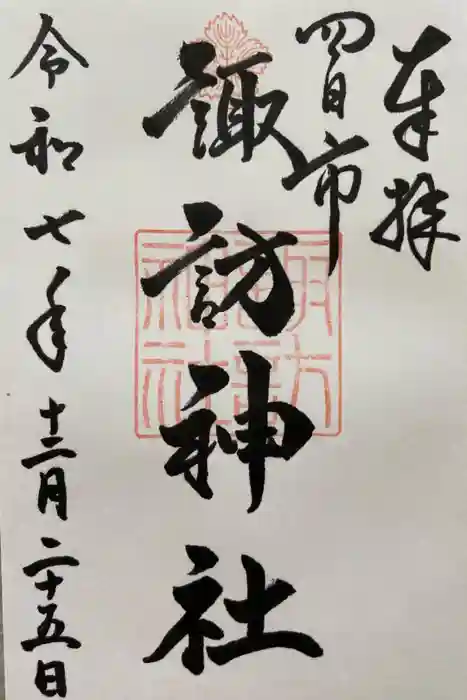 奉拝
四日市
諏訪神社
令和七年十二月二十五日